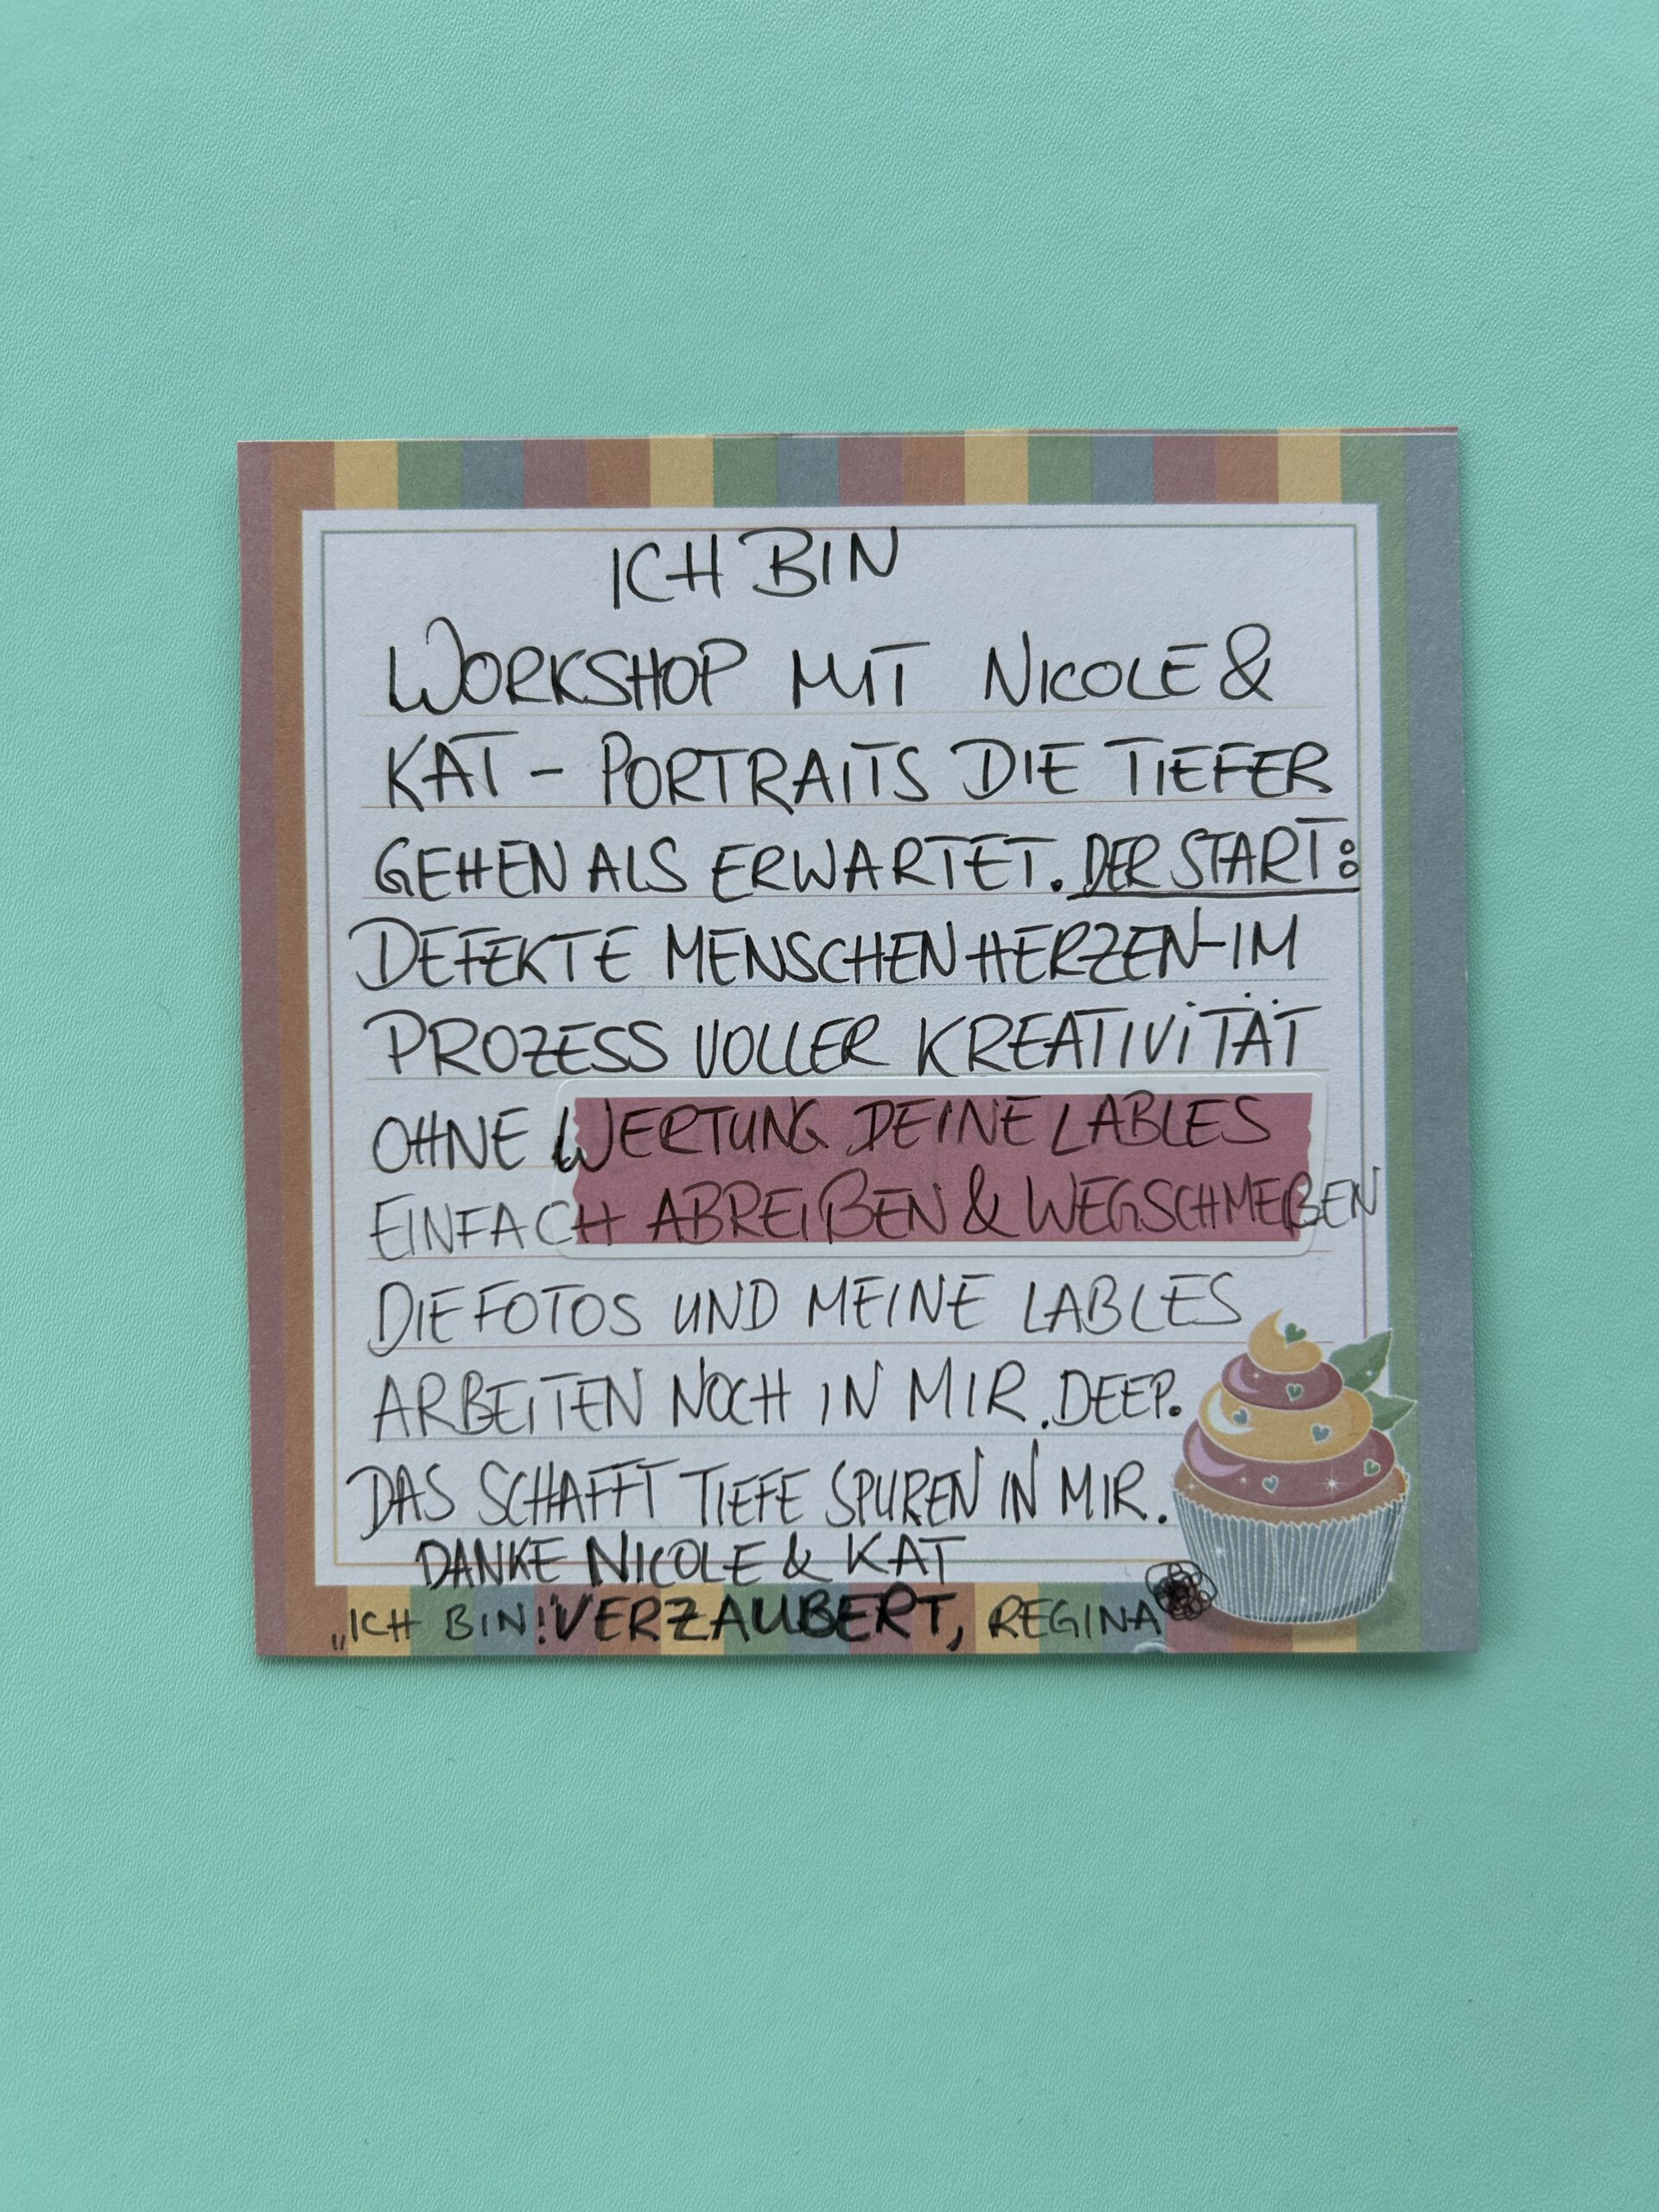 ICH BIN
WORKSHOP MIT NICOLE &
KAT - PORTRAITS DIE TIEFER
GEHEN ALS ERWARTET. DER START:
DEFEKTE MENSCHENHERZEN-IM
PROZESS VOLLER KREATIVITÄT
OHNE WERTUNG DEINE LABLES
EINFACH ABREIßEN & WEGSCHMEIßEN
DIE FOTOS UND MEINE LABLES
ARBEITEN NOCH IN MIR. DEEP.
DAS SCHAFFT TIEFE SPUREN IN MIR.
DANKE NICOLE & KAT
„ICH BIN!"VERZAUBERT, REGINA